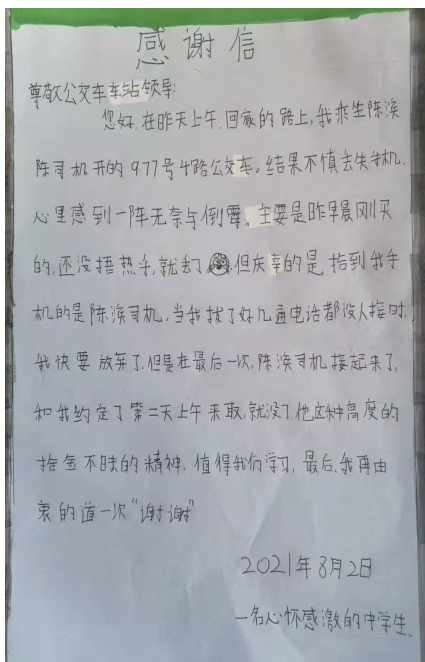 感谢信
尊敬公交车车站领导:
您好,在昨天上午,回家的路上,我乘生陈滨
陈司机开的977号4路公交车。结果不慎丢失手机,
心里感到一阵无奈与倒霉。主要是昨早晨刚买
的,还没捂热乎,就丢了,但庆幸的是,拾到我手
机的是陈滨司机,当我拨了好几通电话都没人接时,
我快要放弃了,但是在最后一次,陈滨司机接起来了,
和我约定了第二天上午来取,就没了,他这种高度的
拾金不昧的精神,值得我们学习,最后,我再由
衷的道一次"谢谢"
2021年8月2日
一名心怀感激的中学生.